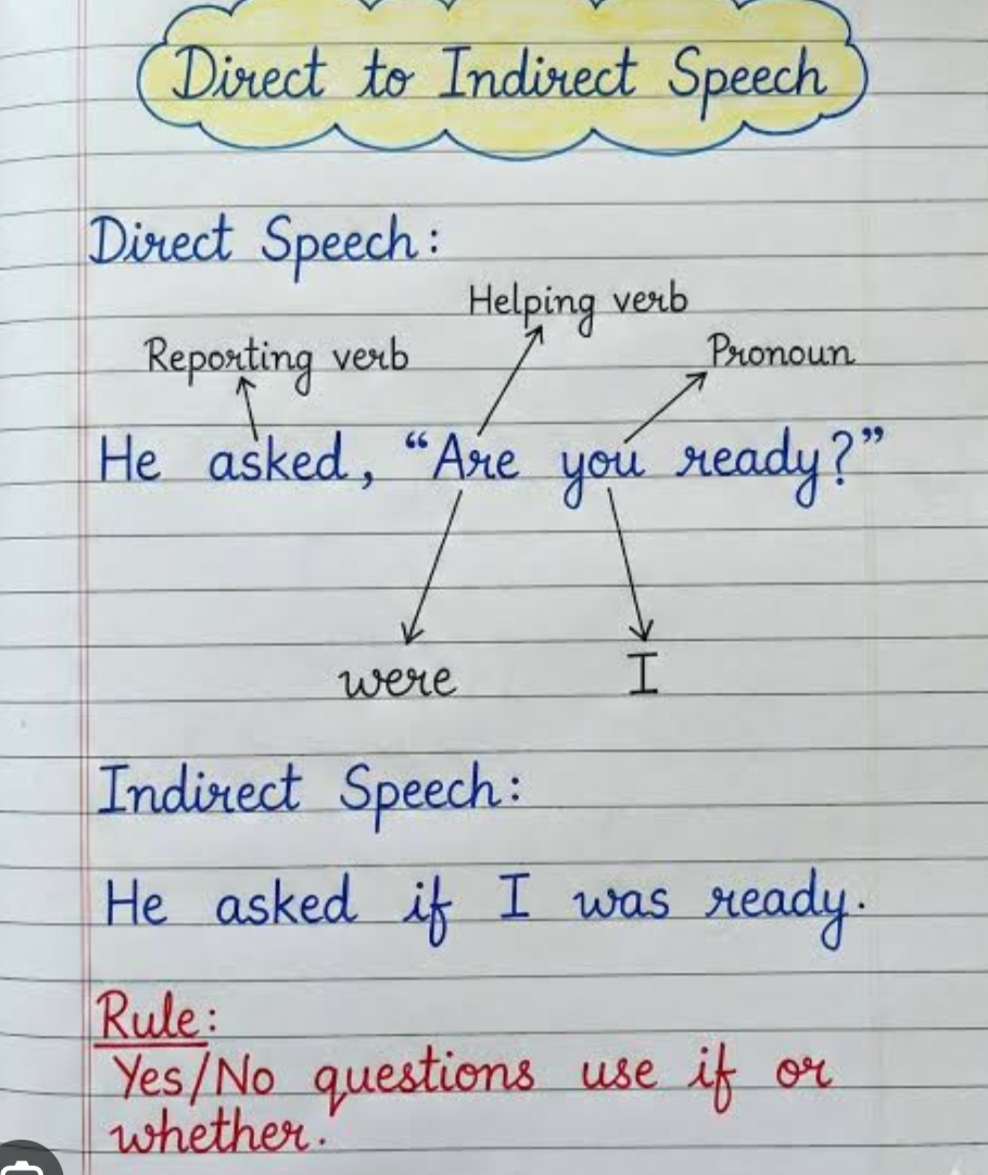 Direct to Indirect Speech
Direct Speech:
Helping verb
Reporting verb
Pronoun
He asked, “Are you ready?”
were
I
Indirect Speech:
He asked if I was ready.
Rule:
Yes/No questions use if or
whether.